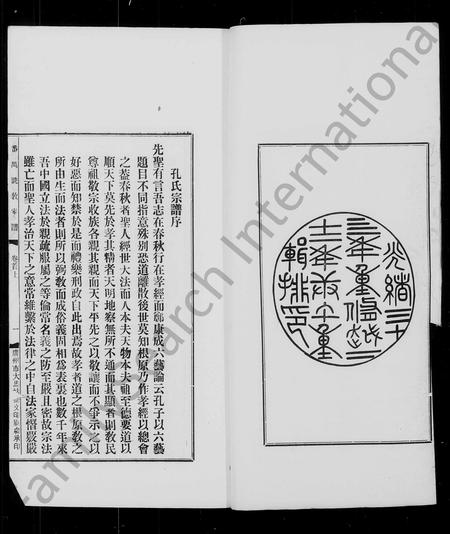 光緒三十
三年重
輯排印
孔氏宗譜序
先聖有言吾志在春秋行在孝經而鄭康成六藝論云孔子以六藝
題目不同指意殊別恐道離散後世莫知根原乃作孝經以總會
之蓋春秋者聖人經世大法而人本夫天物本夫祖至德要道以
順天下莫先於孝其精者天明地察無所不通而其顯者則教民
尊祖敬宗收族各親其親而天下平先之以敬讓而不爭示之以
好惡而知禁於是而禮樂刑政自此出焉故孝者道之根原教之
所由生而法者則所以弼教而成俗義固相為表裏也數千年來
吾中國立法於親疏服屬之等倫常名義之防至嚴且密故宗法
雖亡而聖人孝治天下之意常維繫於法律之中自法家
番禺 敦家譜 卷首上 一 廣州市大馬 承印
FamilySearch International